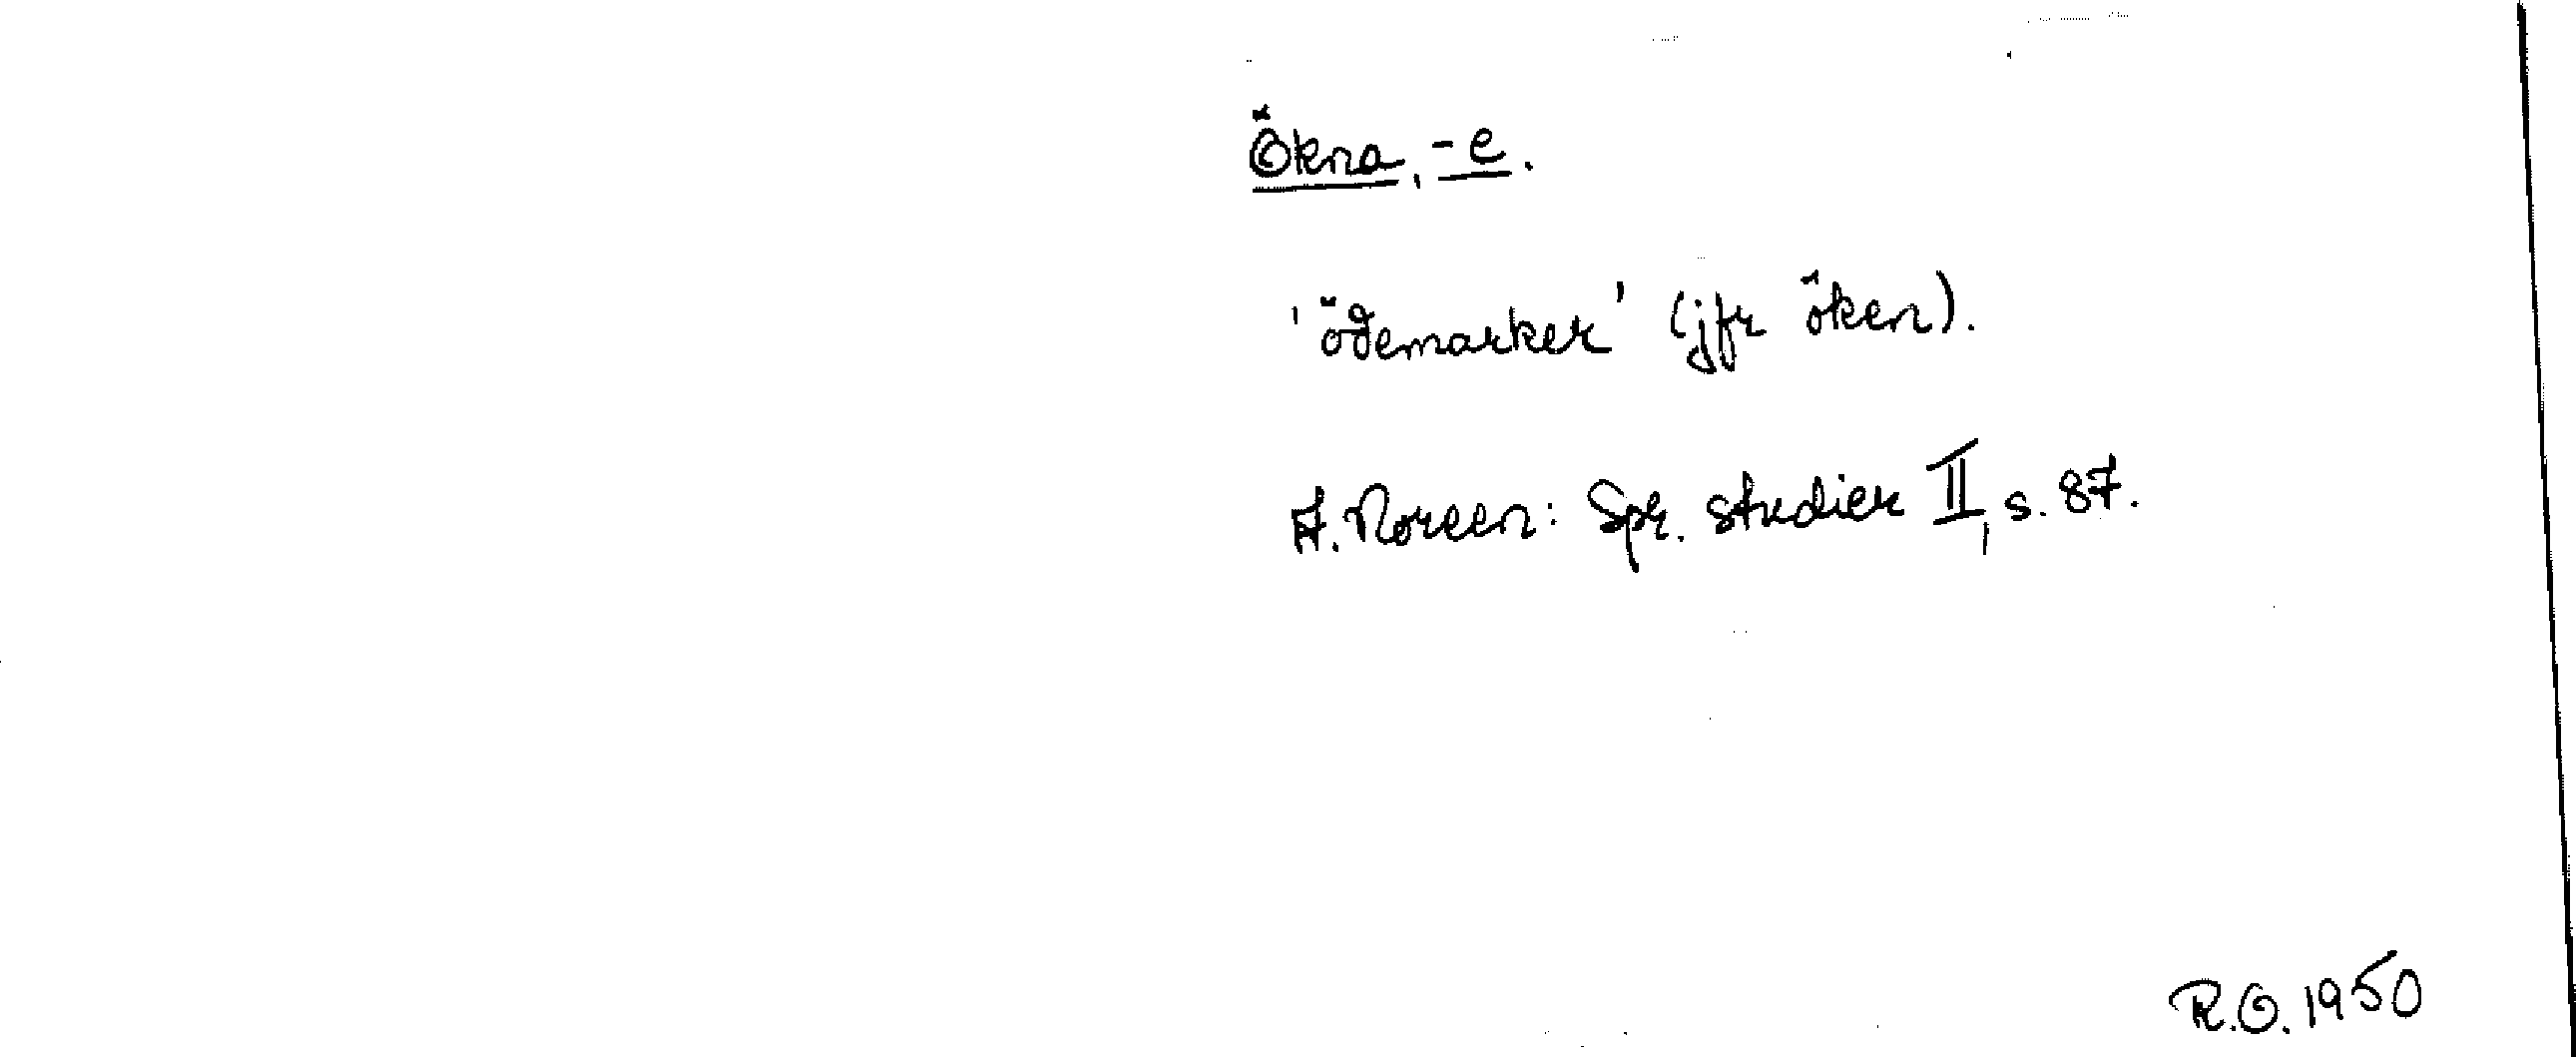 Ökna, -e.
'ödemarker' (jfr öken).
A. Noreen: Spr. studier II, s. 87.
R.O. 1950